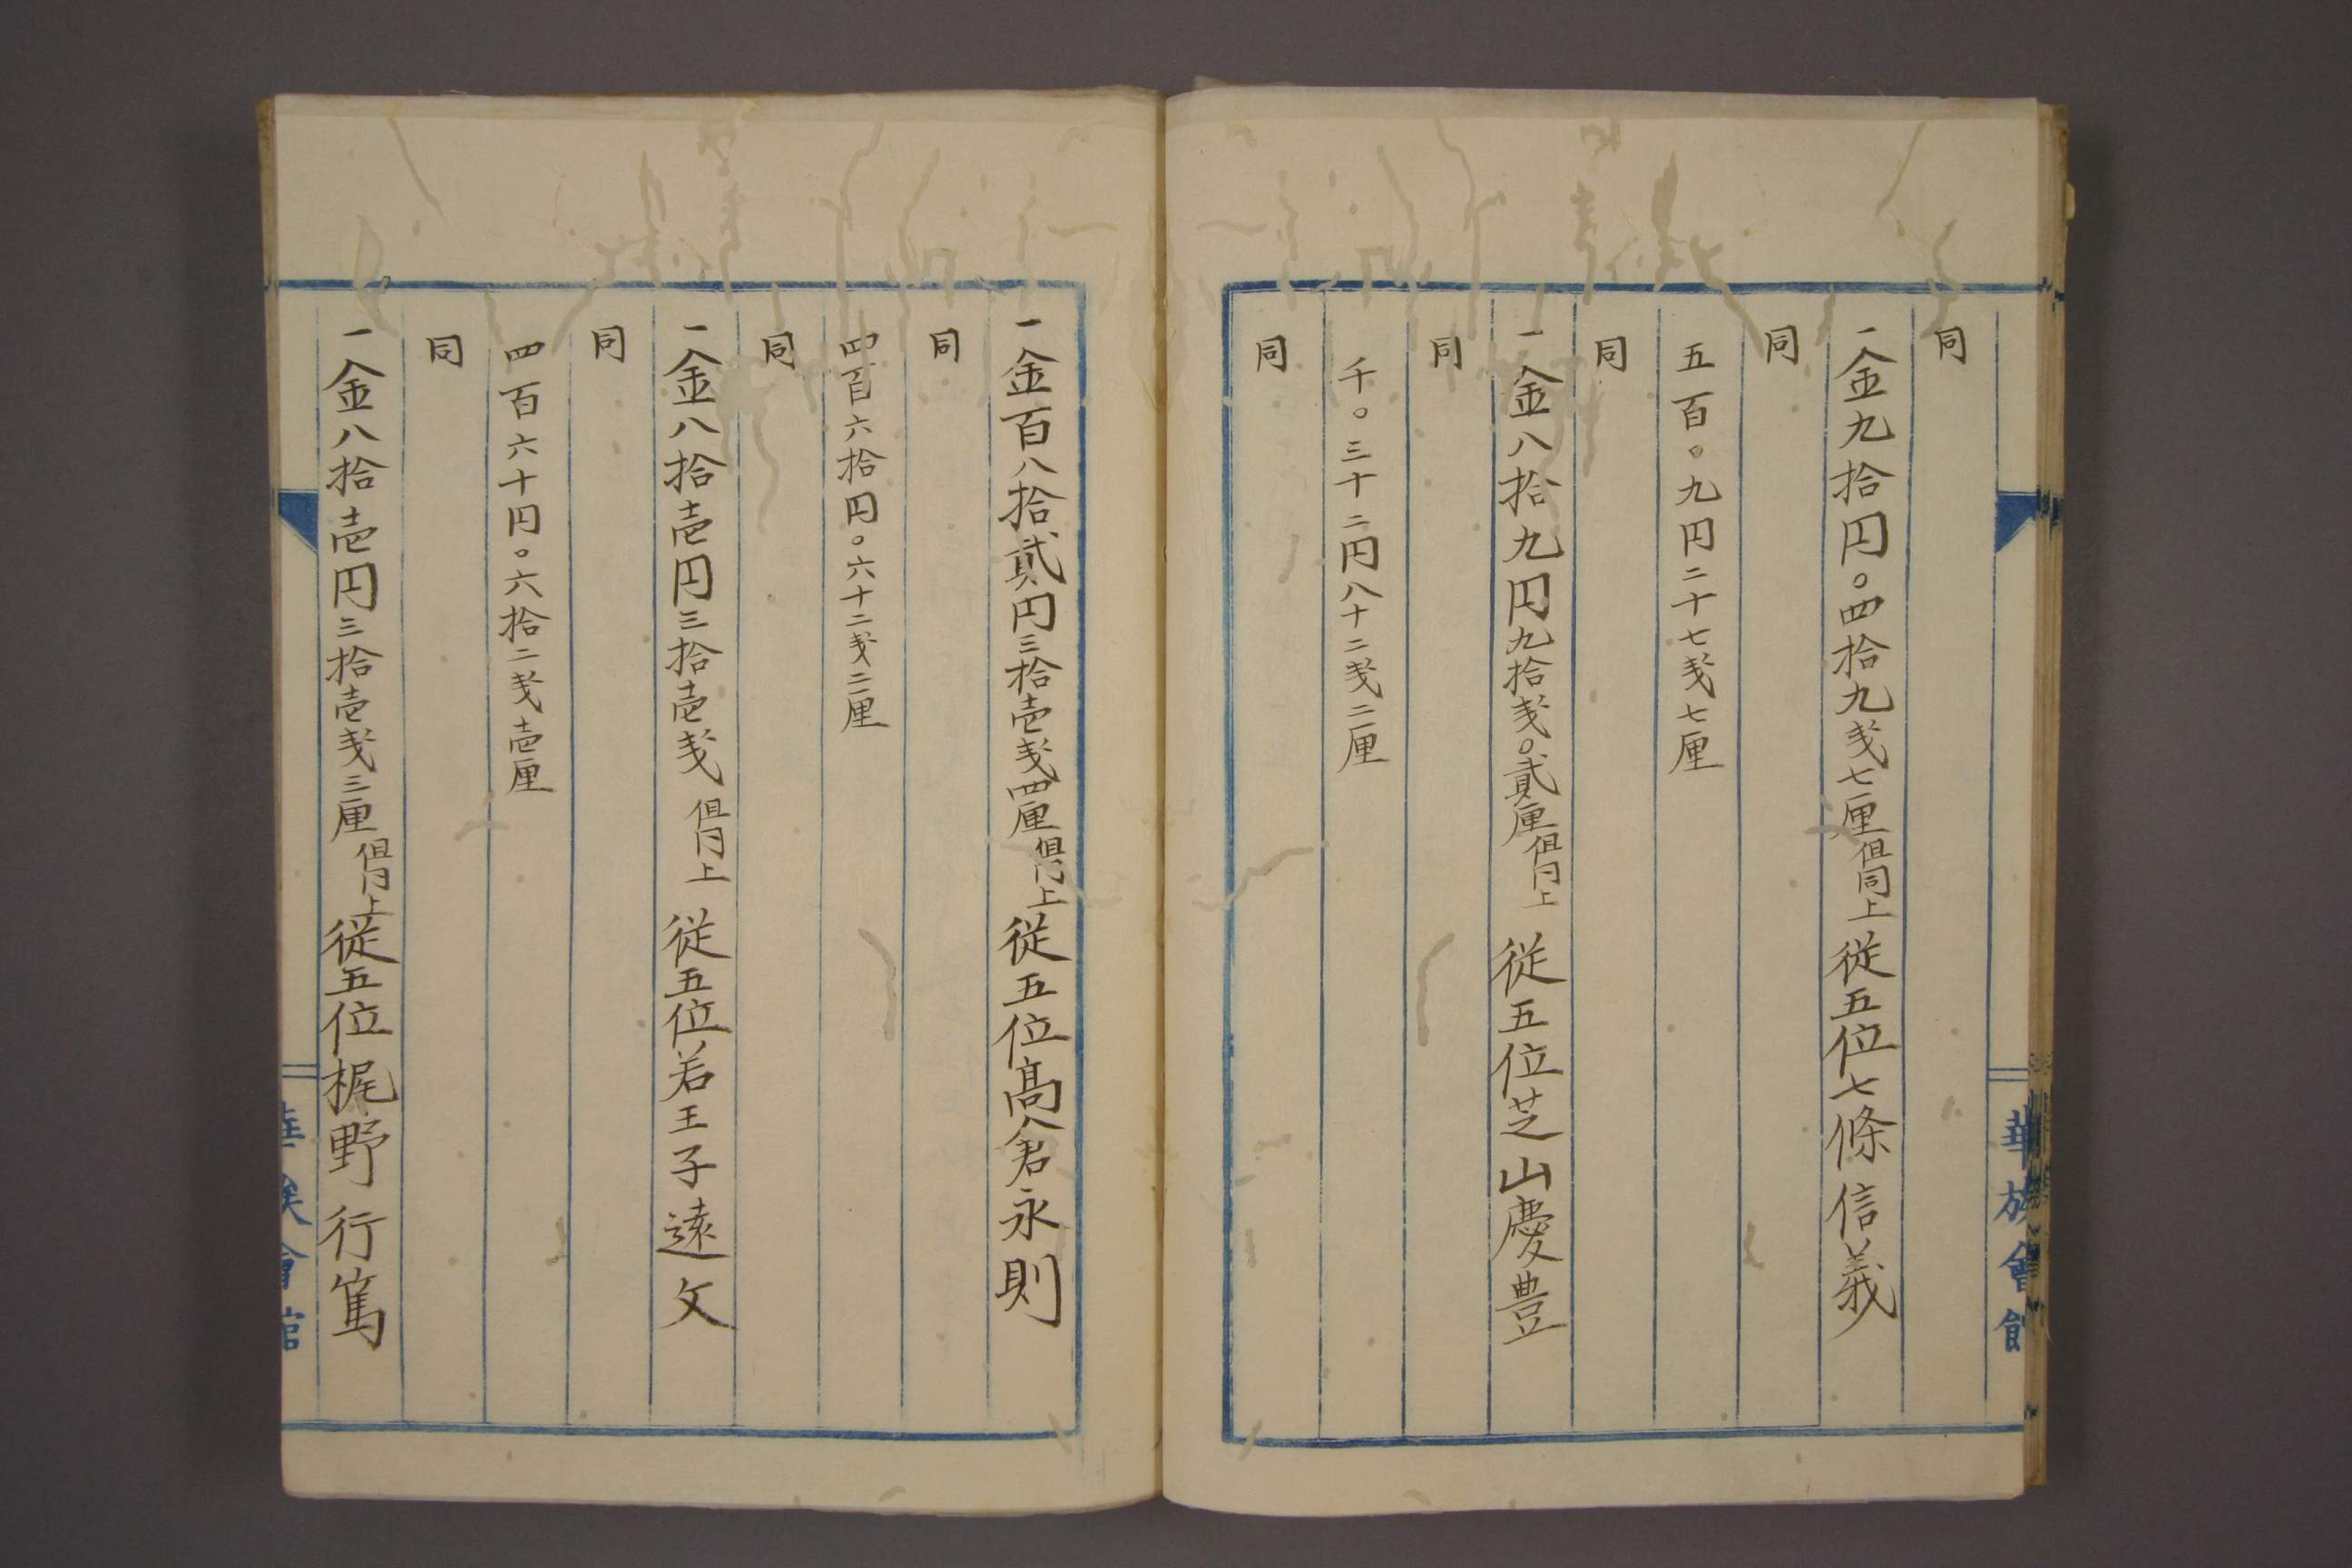 華族會館
同
一金九拾円。四拾九戔七厘但同上従五位七條信義
同
五百。九円二十七戔七厘
同
一金八拾九円九拾戔。貳厘但同上従五位芝山慶豊
同
千。三十二円八十二戔二厘
同
一金百八拾貳円三拾壱戔四厘但同上従五位髙倉永則
同
四百六拾円。六十二戔二厘
同
一金八拾壱円三拾壱戔但同上従五位若王子遠文
同
四百六十円。六拾二戔壱厘
同
一金八拾壱円三拾壱戔三厘但同上従五位梶野行篤
華族會館